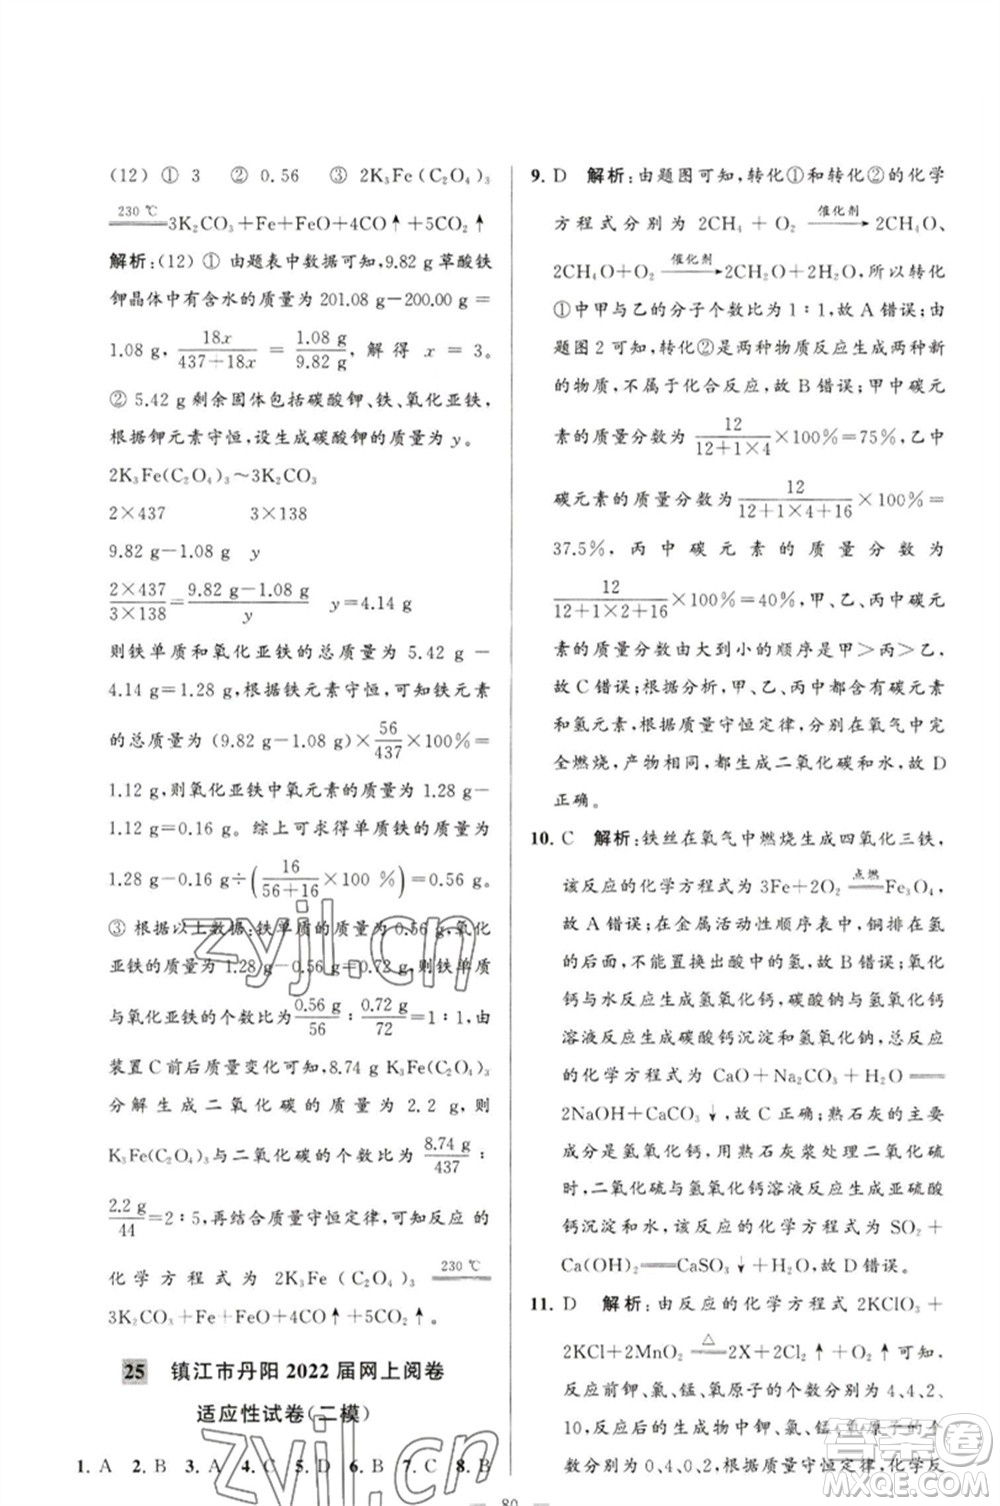 (12) ① 3 ② 0.56 ③ 2K₃Fe(C₂O₄)₃
=230 ℃= 3K₂CO₃+Fe+FeO+4CO↑+5CO₂↑
解析:(12) ① 由题表中数据可知,9.82 g 草酸铁
钾晶体中有含水的质量为 201.08 g-200.00 g=
1.08 g, 18x/(437+18x) = 1.08 g/9.82 g, 解得 x = 3。
② 5.42 g 剩余固体包括碳酸钾、铁、氧化亚铁,
根据钾元素守恒,设生成碳酸钾的质量为 y。
2K₃Fe(C₂O₄)₃~3K₂CO₃
2×437 3×138
9.82 g-1.08 g y
2×437/3×138=9.82 g-1.08 g/y y=4.14 g
则铁单质和氧化亚铁的总质量为 5.42 g-
4.14 g=1.28 g,根据铁元素守恒,可知铁元素
的总质量为 (9.82 g-1.08 g)×56/437×100%=
1.12 g,则氧化亚铁中氧元素的质量为 1.28 g-
1.12 g=0.16 g。综上可求得单质铁的质量为
1.28 g-0.16 g÷(16/(56+16)×100 %)=0.56 g。
③ 根据以上数据:铁单质的质量为 0.56 g,氧化
亚铁的质量为 1.28 g-0.56 g=0.72 g,则铁单质
与氧化亚铁的个数比为0.56 g/56:0.72 g/72=1:1,由
装置 C 前后质量变化可知:8.74 g K₃Fe(C₂O₄)₃
分解生成二氧化碳的质量为 2.2 g,则
K₃Fe(C₂O₄)₃与二氧化碳的个数比为8.74 g/437:
2.2 g/44=2:5,再结合质量守恒定律,可知反应的
化学方程式为 2K₃Fe(C₂O₄)₃ =230 ℃=
3K₂CO₃+Fe+FeO+4CO↑+5CO₂↑
25 镇江市丹阳 2022 届网上阅卷
适应性试卷(二模)
1. A 2. B 3. A 4. C 5. D 6. B 7. C 8. B
9. D 解析:由题图可知,转化①和转化②的化学
方程式分别为 2CH₄ + O₂ —催化剂→ 2CH₄O、
2CH₄O+O₂ —催化剂→ 2CH₂O+2H₂O,所以转化
①中甲与乙的分子个数比为 1:1,故 A 错误;由
题图 2 可知,转化②是两种物质反应生成两种新
的物质,不属于化合反应,故 B 错误;甲中碳元
素的质量分数为12/(12+1×4)×100%=75%,乙中
碳元素的质量分数为12/(12+1×4+16)×100%=
37.5%,丙中碳元素的质量分数为
12/(12+1×2+16)×100%=40%,甲、乙、丙中碳元
素的质量分数由大到小的顺序是甲>丙>乙,
故 C 错误;根据分析,甲、乙、丙中都含有碳元素
和氢元素,根据质量守恒定律,分别在氧气中完
全燃烧,产物相同,都生成二氧化碳和水,故 D
正确。
10. C 解析:铁丝在氧气中燃烧生成四氧化三铁,
该反应的化学方程式为 3Fe+2O₂ =点燃= Fe₃O₄,
故 A 错误;在金属活动性顺序表中,铜排在氢
的后面,不能置换出酸中的氢,故 B 错误;氧化
钙与水反应生成氢氧化钙,碳酸钠与氢氧化钙
溶液反应生成碳酸钙沉淀和氢氧化钠,总反应
的化学方程式为 CaO + Na₂CO₃ + H₂O ══
2NaOH+CaCO₃↓,故 C 正确;熟石灰的主要
成分是氢氧化钙,用熟石灰浆处理二氧化硫
时,二氧化硫与氢氧化钙溶液反应生成亚硫酸
钙沉淀和水,该反应的化学方程式为 SO₂ +
Ca(OH)₂══CaSO₃↓+H₂O,故 D 错误。
11. D 解析:由反应的化学方程式 2KClO₃ +
2KCl+2MnO₂ =△= 2X+2Cl₂↑+2O₂↑可知,反
应前钾、氯、锰、氧原子的个数分别为 4、4、2、
10,反应后的生成物中钾、氯、锰、氧原子的个数
分别为 0、4、0、2,根据反应前后原子种类、数目
80
zyjl.cn
zyjl.cn
答案圈
MXQE.COM